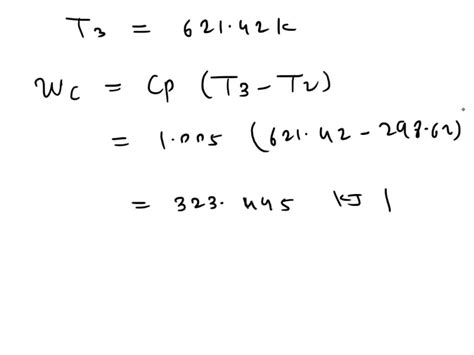 T3 = 621.42k
Wc = Cp (T3 - T2)
= 1.005 (621.42 - 298.62)
= 323.445 kJ |